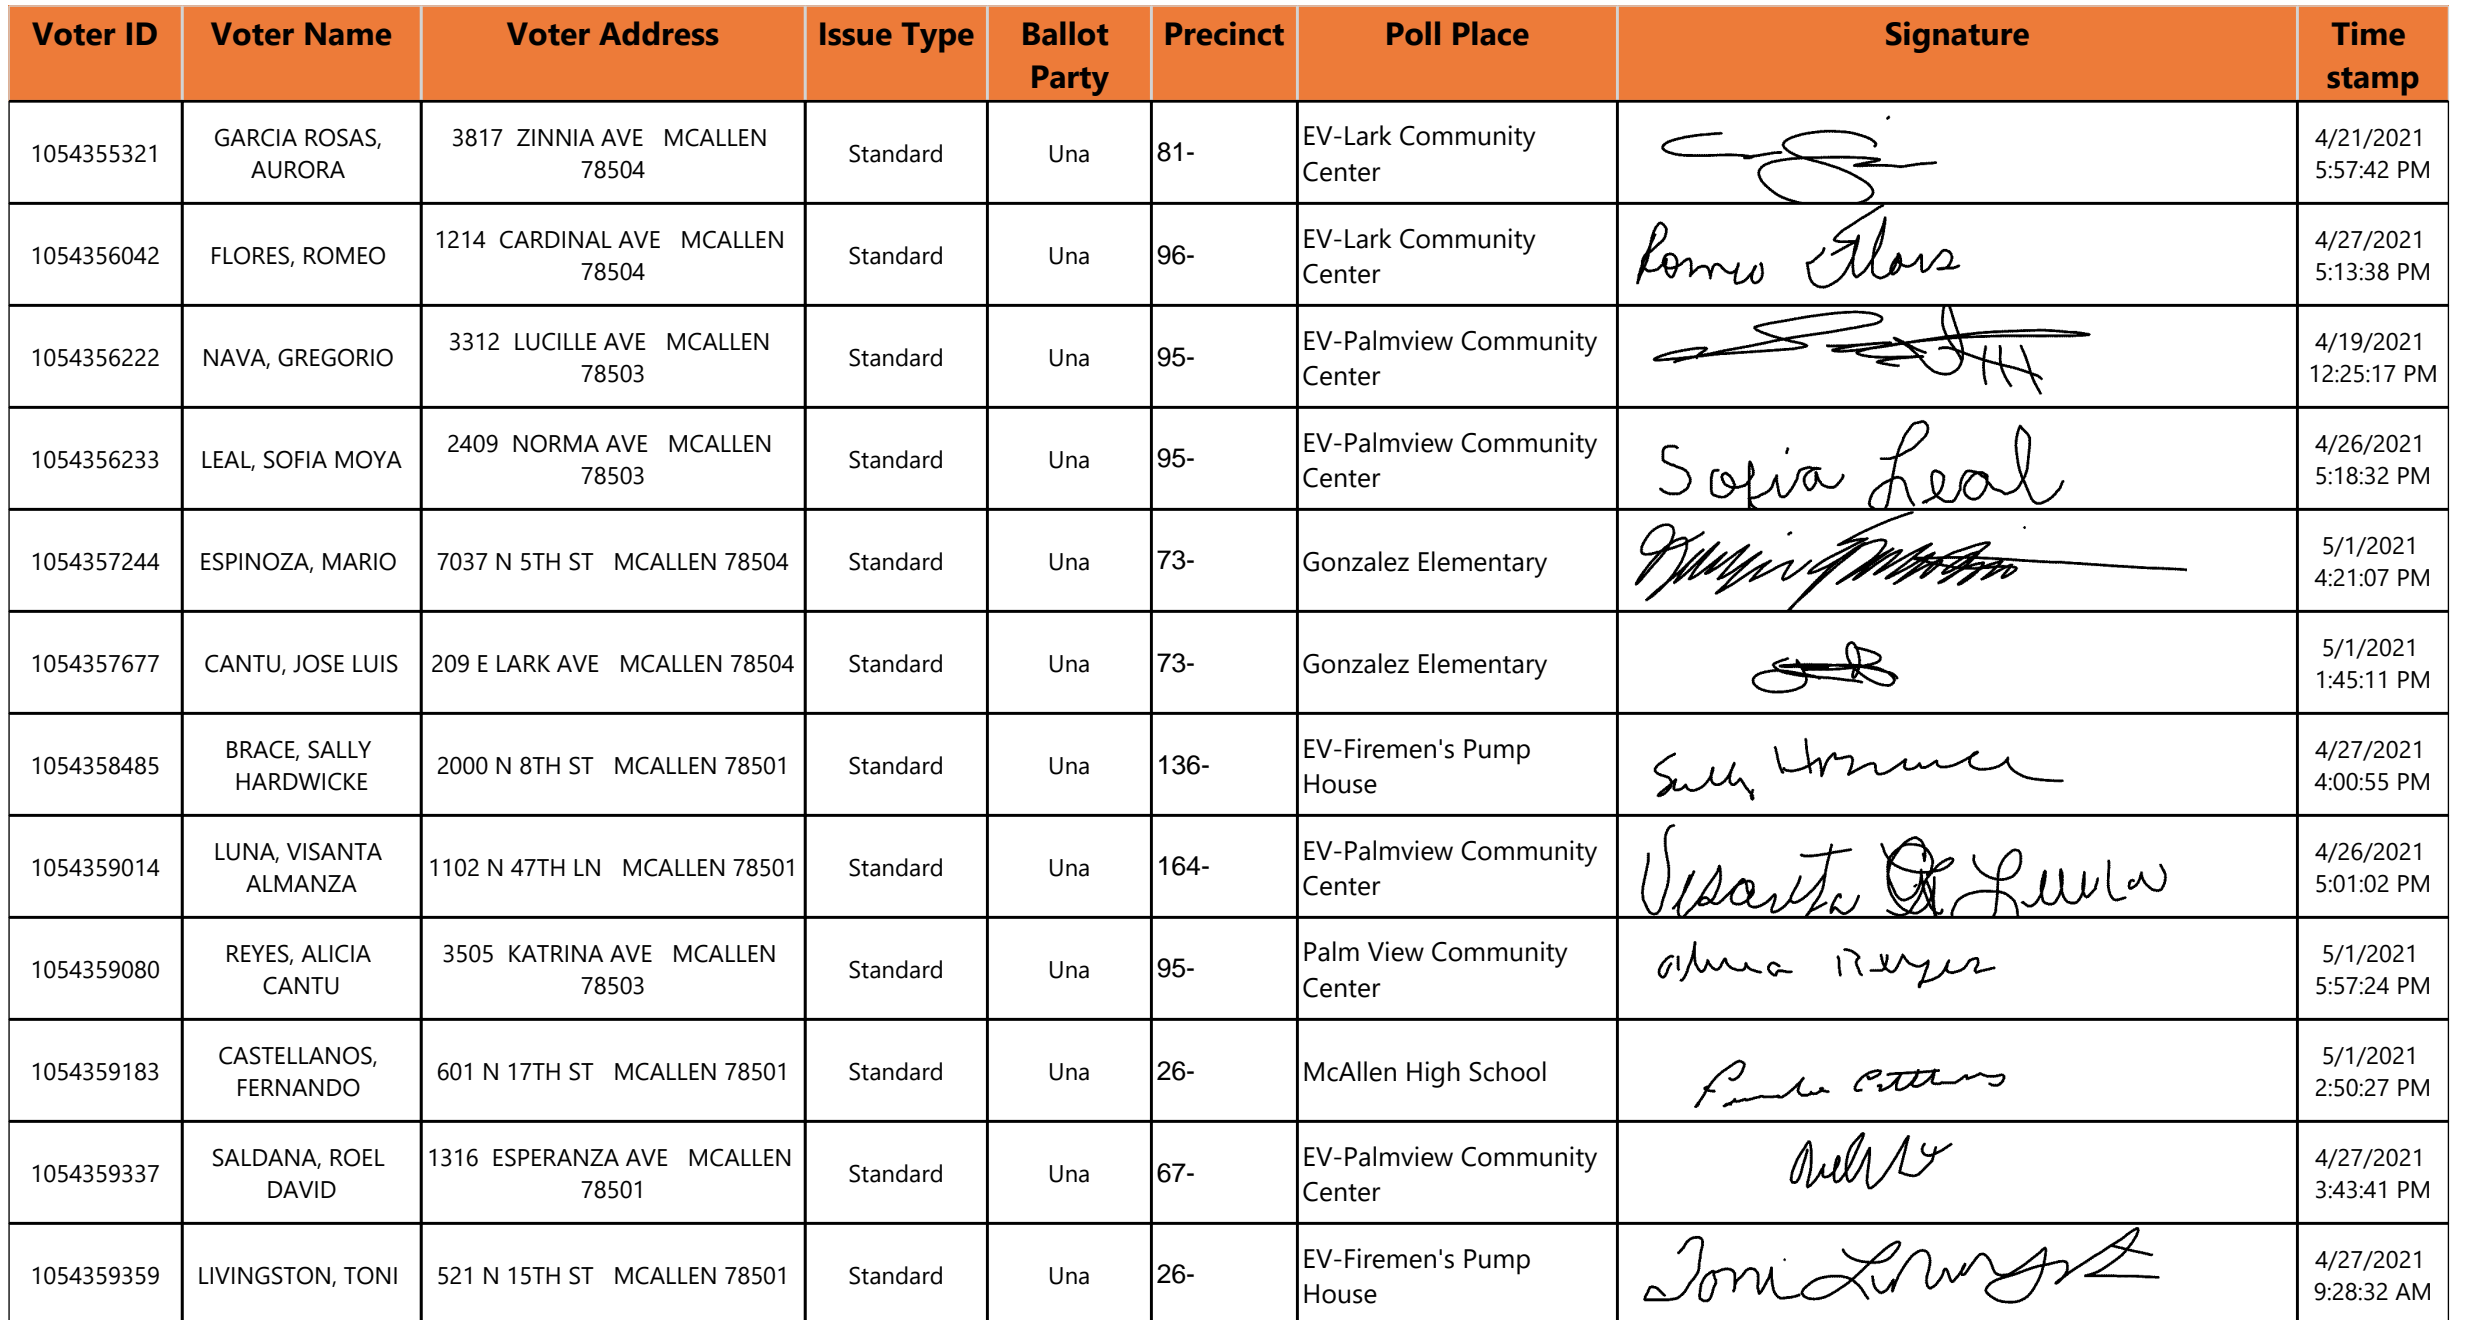 Voter ID Voter Name Voter Address Issue Type Ballot Precinct Poll Place Signature Time
Party stamp
1054355321 GARCIA ROSAS, 3817 ZINNIA AVE MCALLEN Standard Una 81- EV-Lark Community 4/21/2021
AURORA 78504 Center 5:57:42 PM
1054356042 FLORES, ROMEO 1214 CARDINAL AVE MCALLEN Standard Una 96- EV-Lark Community Romeo Flores 4/27/2021
78504 Center 5:13:38 PM
1054356222 NAVA, GREGORIO 3312 LUCILLE AVE MCALLEN Standard Una 95- EV-Palmview Community 4/19/2021
78503 Center 12:25:17 PM
1054356233 LEAL, SOFIA MOYA 2409 NORMA AVE MCALLEN Standard Una 95- EV-Palmview Community Sofia Leal 4/26/2021
78503 Center 5:18:32 PM
1054357244 ESPINOZA, MARIO 7037 N 5TH ST MCALLEN 78504 Standard Una 73- Gonzalez Elementary 5/1/2021
4:21:07 PM
1054357677 CANTU, JOSE LUIS 209 E LARK AVE MCALLEN 78504 Standard Una 73- Gonzalez Elementary 5/1/2021
1:45:11 PM
1054358485 BRACE, SALLY 2000 N 8TH ST MCALLEN 78501 Standard Una 136- EV-Firemen's Pump Sally 4/27/2021
HARDWICKE House 4:00:55 PM
1054359014 LUNA, VISANTA 1102 N 47TH LN MCALLEN 78501 Standard Una 164- EV-Palmview Community Visanta A Luna 4/26/2021
ALMANZA Center 5:01:02 PM
1054359080 REYES, ALICIA 3505 KATRINA AVE MCALLEN Standard Una 95- Palm View Community Alicia Reyes 5/1/2021
CANTU 78503 Center 5:57:24 PM
1054359183 CASTELLANOS, 601 N 17TH ST MCALLEN 78501 Standard Una 26- McAllen High School 5/1/2021
FERNANDO 2:50:27 PM
1054359337 SALDANA, ROEL 1316 ESPERANZA AVE MCALLEN Standard Una 67- EV-Palmview Community 4/27/2021
DAVID 78501 Center 3:43:41 PM
1054359359 LIVINGSTON, TONI 521 N 15TH ST MCALLEN 78501 Standard Una 26- EV-Firemen's Pump Toni Livingston 4/27/2021
House 9:28:32 AM